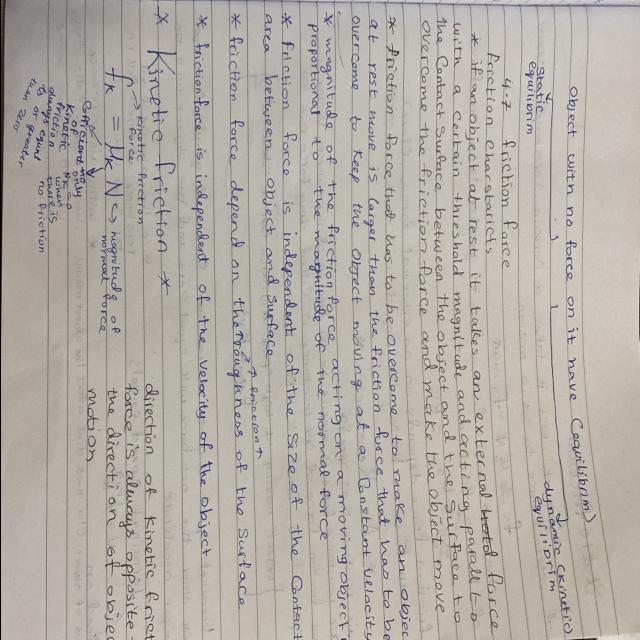 object with no force on it have (equilibrim)
static equilibrim
dynamic (kinetic) equilibrim
4.7 friction force
friction charstaricts
* if an object at rest it takes an external force
with a certain threshold magnitude and acting parall to
the Contact Surface between the object and the Surface to
overcome the friction force and make the object move
* friction force that has to be overcome to make an objec
at rest move is larger than the friction force that has to be
overcome to keep the object moving at a Constant velocity
* magnitude of the friction force acting on a moving object
proportional to the magnitude of the normal force
* friction force is independent of the size of the Contact
area between object and surface
friction ↑
* friction force depend on the roughness of the surface
* friction force is independent of the velocity of the object
* Kinetic friction *
Kinetic friction force
fk = μk N
magnitude of normal force
Kinetic friction
always
or equal
than zero
μk = 0
when there is
no friction
direction of kinetic frict
force is always opposite
the direction of objec
motion